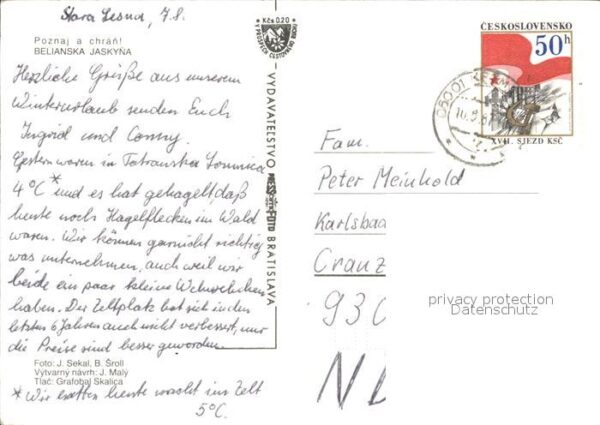 Stara Lesna, 7.8.
Poznaj a chráň!
BELIANSKA JASKYŇA
Herzliche Grüße aus unserem
Winterurlaub senden Euch
Ingrid und Conny.
Gestern waren in Tatranska Lomnica
4°C * und es hat gehagelt, daß
heute noch Hagelflecken im Wald
waren. Wir können garnicht richtig
was unternehmen, auch weil wir
beide ein paar kleine Wehwehchen
haben. Der Zeltplatz hat sich in den
letzten 6 Jahren auch nicht verbessert, nur
die Preise sind besser geworden.
Foto: J. Sekal, B. Šroll
Výtvarný návrh: J. Malý
Tlač: Grafobal Skalica
* Wir hatten heute nacht im Zelt
5°C.
Kčs 0,20
V PROSPĚCH CESTOVNÉHO RUCHU
VYDAVATEĽSTVO
BRATISLAVA
ČESKOSLOVENSKO
50h
XVII. SJEZD KSČ
Fam.
Peter Meinhold
Karlsbad
Cranz
930
privacy protection
Datenschutz